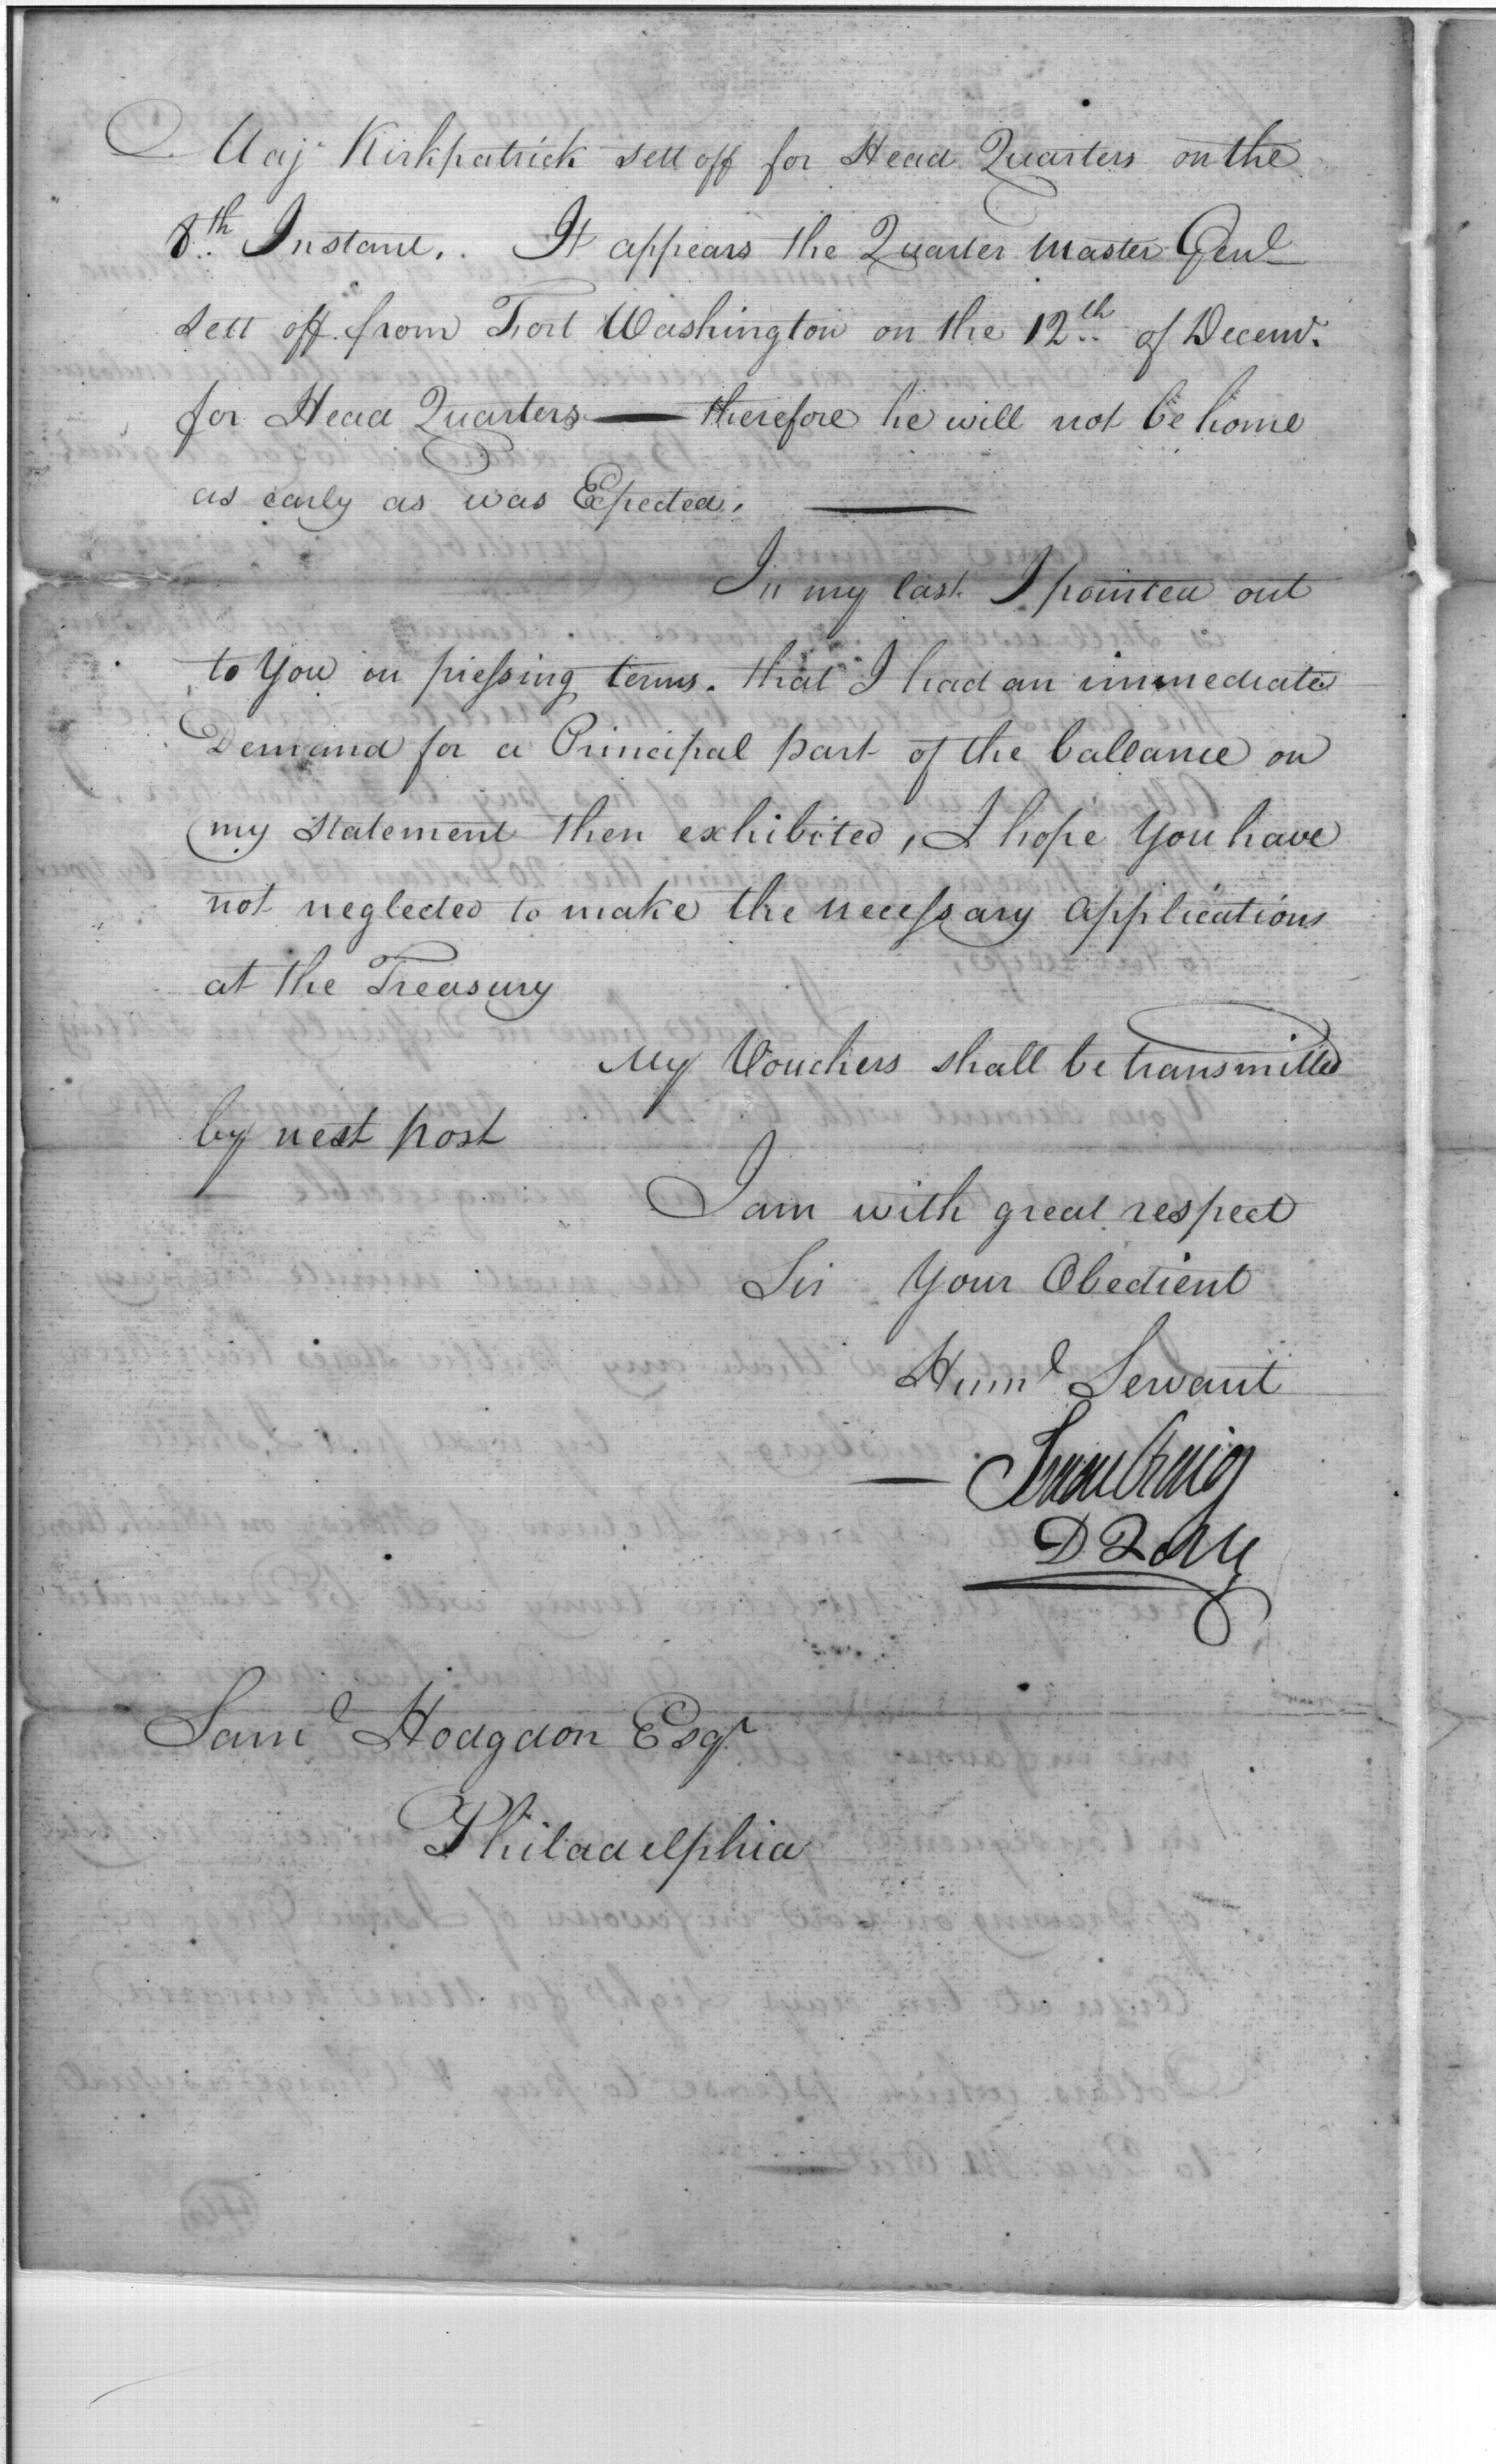 Maj.r Kirkpatrick sett off for Head Quarters on the
8th Instant. It appears the Quarter Master Genl
sett off from Fort Washington on the 12th of Decemr.
for Head Quarters — therefore he will not be home
as early as was Expected. —
In my last I pointed out
to You in pressing terms. that I had an immediate
Demand for a Principal part of the ballance on
my Statement then exhibited, I hope You have
not neglected to make the necessary Applications
at the Treasury
My Vouchers shall be transmitted
by next post
I am with great respect
Sir Your Obedient
Huml Servant
— Isaac Craig
D Q M
Saml Hodgdon Esqr
Philadelphia